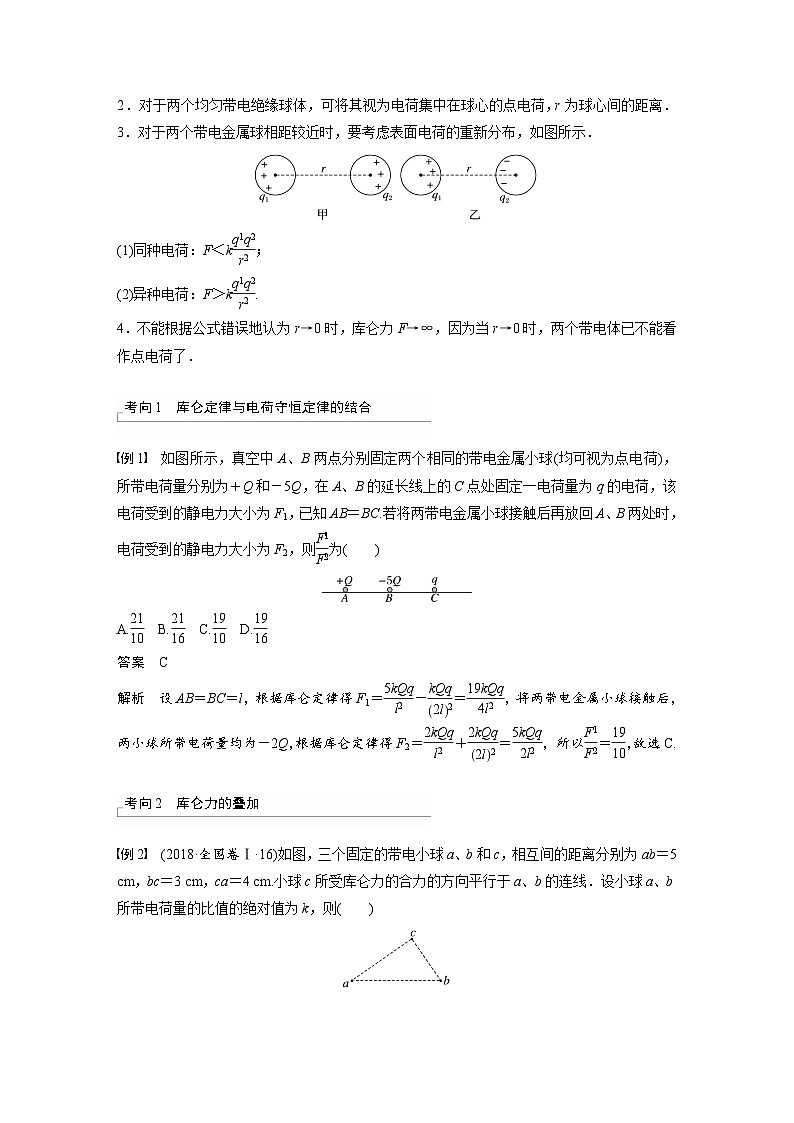 2．对于两个均匀带电绝缘球体，可将其视为电荷集中在球心的点电荷，r 为球心间的距离．
3．对于两个带电金属球相距较近时，要考虑表面电荷的重新分布，如图所示．
+ + + q1 r + + + q2 + + + q1 r − − − q2
甲 乙
(1)同种电荷：F＜k\frac{q1q2}{r2}；
(2)异种电荷：F＞k\frac{q1q2}{r2}.
4．不能根据公式错误地认为 r→0 时，库仑力 F→∞，因为当 r→0 时，两个带电体已不能看
作点电荷了．
考向 1　库仑定律与电荷守恒定律的结合
例 1　如图所示，真空中 A、B 两点分别固定两个相同的带电金属小球(均可视为点电荷)，
所带电荷量分别为＋Q 和－5Q，在 A、B 的延长线上的 C 点处固定一电荷量为 q 的电荷，该
电荷受到的静电力大小为 F1，已知 AB＝BC.若将两带电金属小球接触后再放回 A、B 两处时，
电荷受到的静电力大小为 F2，则\frac{F1}{F2}为(　　)
+Q −5Q q
A B C
A.\frac{21}{10}　B.\frac{21}{16}　C.\frac{19}{10}　D.\frac{19}{16}
答案　C
解析　设 AB＝BC＝l，根据库仑定律得 F1＝\frac{5kQq}{l2}－\frac{kQq}{(2l)2}＝\frac{19kQq}{4l2}，将两带电金属小球接触后，
两小球所带电荷量均为－2Q，根据库仑定律得 F2＝\frac{2kQq}{l2}＋\frac{2kQq}{(2l)2}＝\frac{5kQq}{2l2}，所以\frac{F1}{F2}＝\frac{19}{10}，故选 C.
考向 2　库仑力的叠加
例 2　(2018·全国卷Ⅰ·16)如图，三个固定的带电小球 a、b 和 c，相互间的距离分别为 ab＝5
cm，bc＝3 cm，ca＝4 cm.小球 c 所受库仑力的合力的方向平行于 a、b 的连线．设小球 a、b
所带电荷量的比值的绝对值为 k，则(　　)
c
a b